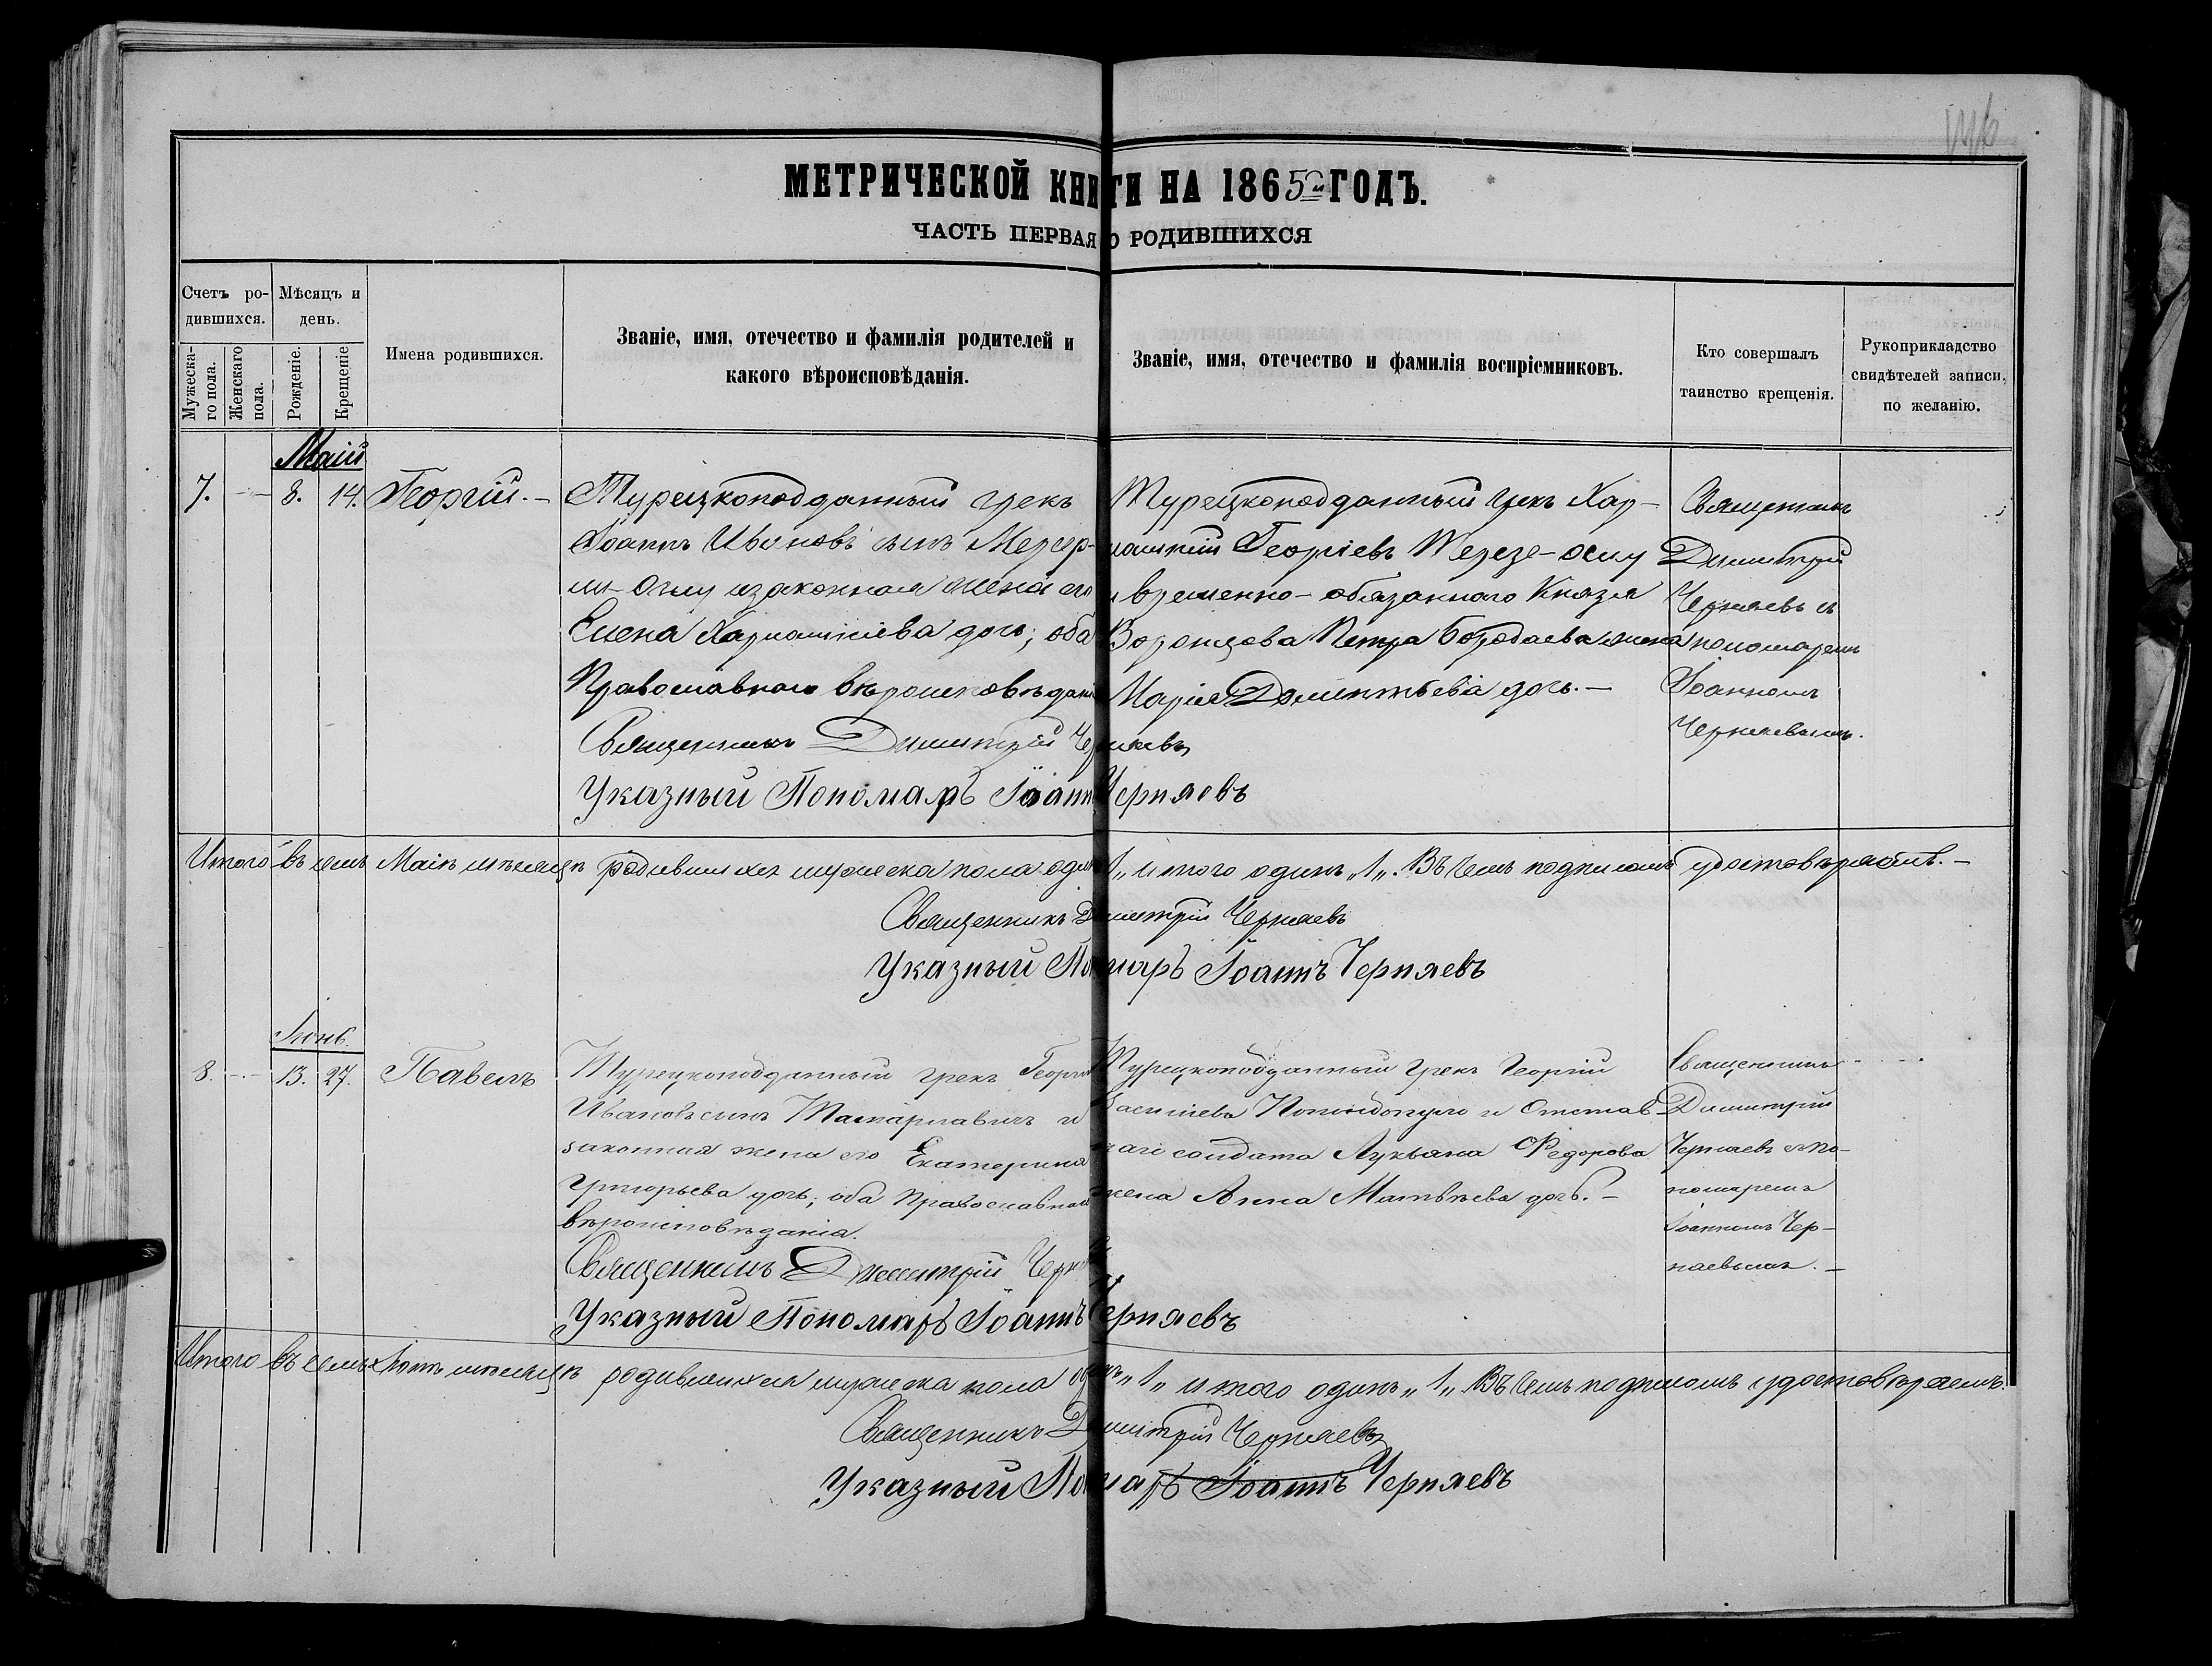 146
МЕТРИЧЕСКОЙ КНИГИ НА 1865й ГОДЪ.
ЧАСТЬ ПЕРВАЯ О РОДИВШИХСЯ
Счетъ ро-
дившихся.
Мужеска-
го пола.
Женскаго
пола.
Мѣсяцъ и
день.
Рожденіе.
Крещеніе
Имена родившихся.
Званіе, имя, отечество и фамилія родителей и
какого вѣроисповѣданія.
Званіе, имя, отечество и фамилія воспріемниковъ.
Кто совершалъ
таинство крещенія.
Рукоприкладство
свидѣтелей записи,
по желанію.
Маій
7. — 8. 14. Георгій. —
Турецкоподданный грекъ
Іоаннъ Ивановъ сынъ
и законная жена его
Елена Харлампіева дочь; оба
Православнаго вѣроисповѣданія
Турецкоподданный грекъ Хар-
лампій Георгіевъ Терезе-оглу
и временно-обязаннаго Князя
Воронцова Петра Бородаева жена
Марія Дометьева дочь. —
Священникъ
Димитрій
Черняевъ съ
пономаремъ
Іоанномъ
Черняевымъ.
Священникъ Димитрій Черняевъ
Указный Пономарь Іоаннъ Черняевъ
Итого въ семъ Маіѣ мѣсяцѣ родившихся мужеска пола одинъ „1„ итого одинъ „1„. Въ чемъ подписомъ удостовѣряемъ. —
Священникъ Димитрій Черняевъ
Указный Пономарь Іоаннъ Черняевъ
Іюнь.
8. — 13. 27. Павелъ
Турецкоподданный грекъ Георгій
Ивановъ сынъ и
законная жена его Екатерина
Григорьева дочь; оба Православнаго
вѣроисповѣданія.
Турецкоподданный грекъ Георгій
Васильевъ и Отстав-
наго солдата Лукьяна Федорова
жена Анна Матвѣева дочь. —
Священникъ
Димитрій
Черняевъ съ по-
номаремъ
Іоанномъ Чер-
няевымъ. —
Священникъ Димитрій Черняевъ
Указный Пономарь Іоаннъ Черняевъ
Итого въ семъ Іюнѣ мѣсяцѣ родившихся мужеска пола одинъ „1„ итого одинъ „1„ Въ чемъ подписомъ удостовѣряемъ.
Священникъ Димитрій Черняевъ
Указный Пономарь Іоаннъ Черняевъ